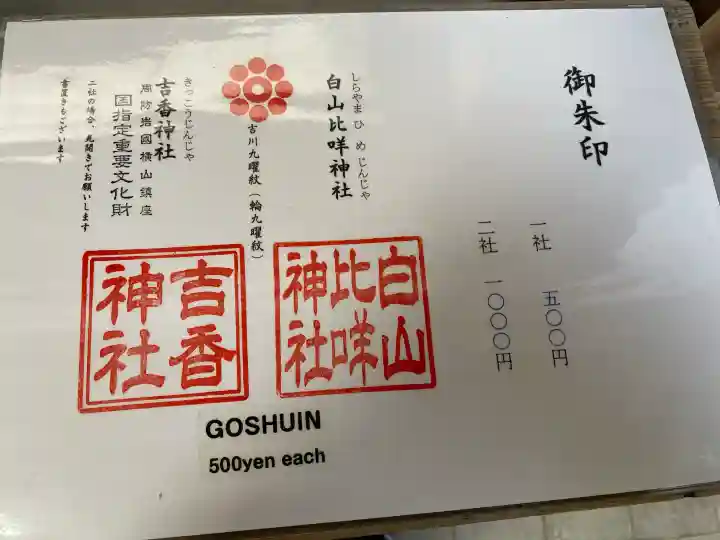 御朱印
一社 五〇〇円
二社 一〇〇〇円
しらやま ひ め じんじゃ
白山比咩神社
吉川九曜紋(輪九曜紋)
きっこうじんじゃ
吉香神社
周防岩國横山鎮座
国指定重要文化財
二社の場合、見開きでお願いします
書置きもございます
白山比咩神社
吉香神社
GOSHUIN
500yen each